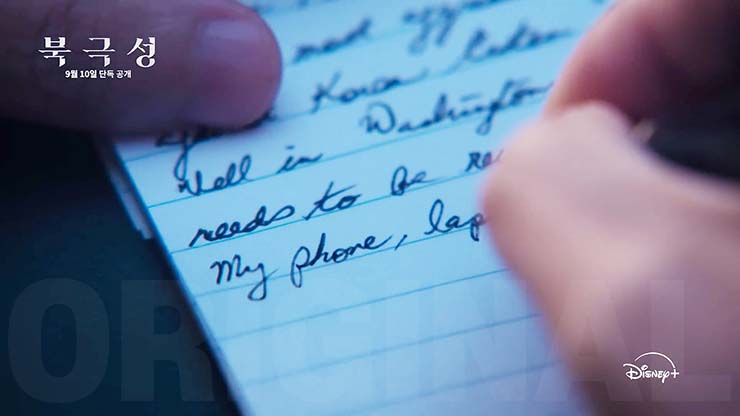 북극성
9월 10일 단독 공개
Korea
Well in Washington
needs to be re
My phone, lap
ORIGINAL
Disney+